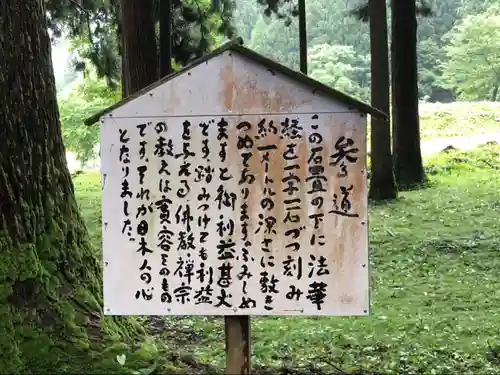 参る道
この石畳の下に法華
経を一字一石づつ刻み
納一メールの深さに敷き
つめてあります。ふみしめ
ますと御利益甚大
です。踏みつけても利益
を与える、佛教、禅宗
の教えは寛容そのもの
です。それが日本人の心
となりました。